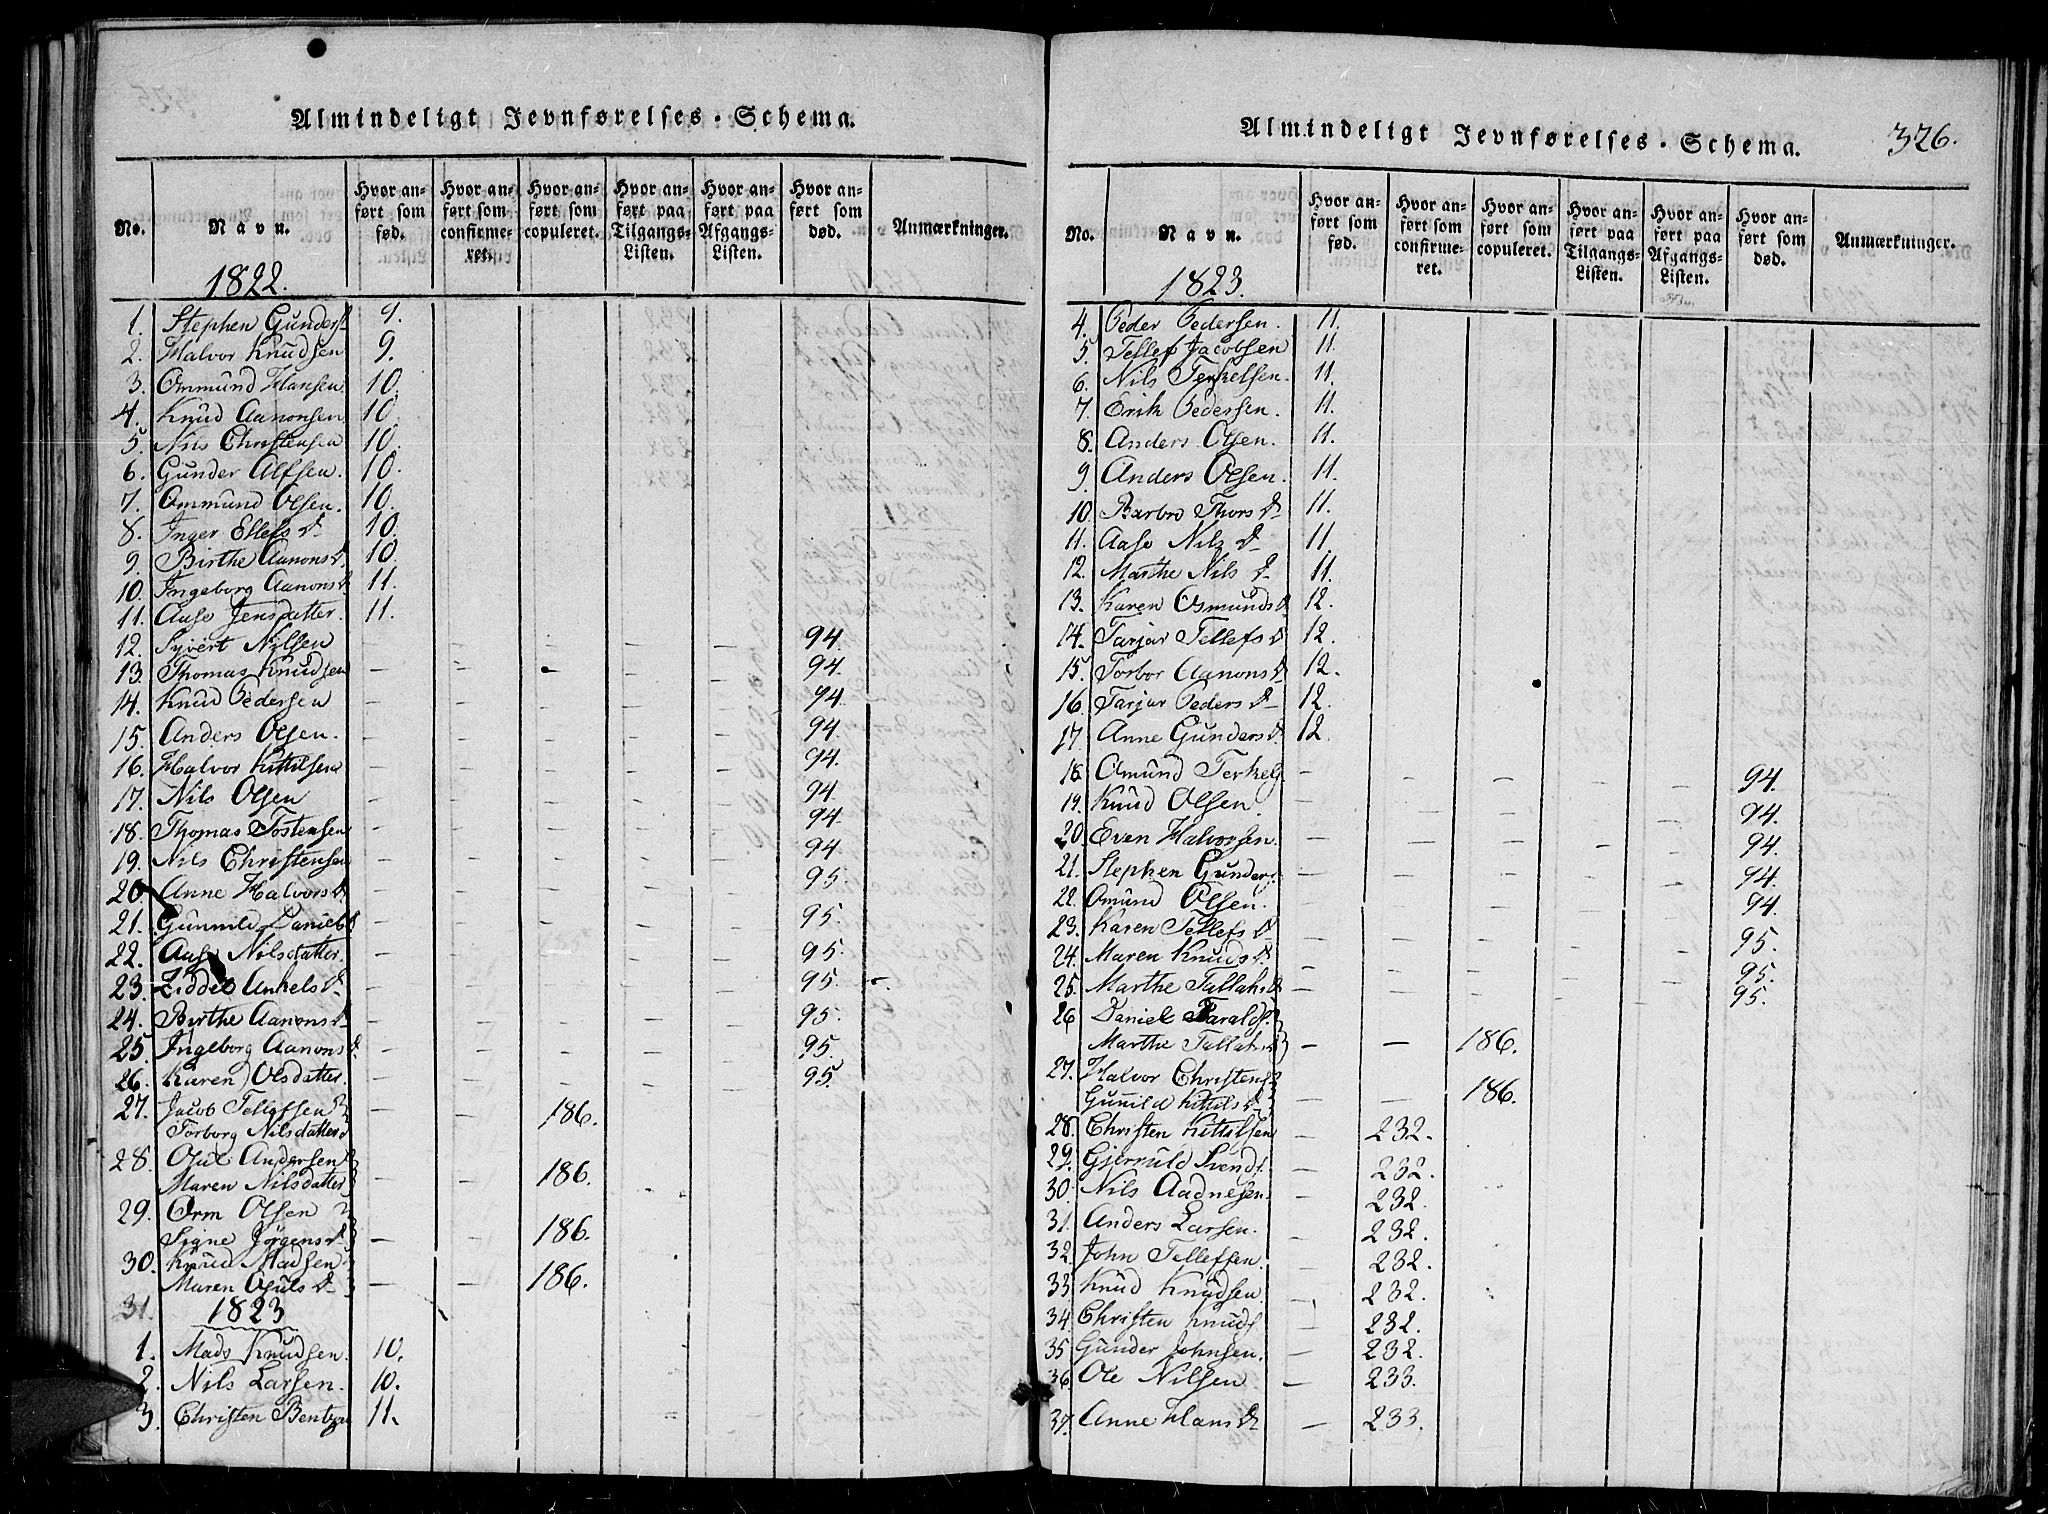 Almindeligt Jevnførelses-Schema.
No. Navn. Hvor anført som fød. Hvor anført som confirmeret. Hvor anført som copuleret. Hvor anført paa Tilgangs-Listen. Hvor anført paa Afgangs-Listen. Hvor anført som død. Anmærkninger.
1822.
1. Stephen Gunders 9.
2. Halvor Knudsen 9.
3. Ommund Hansen 10.
4. Knud Aanonsen 10.
5. Nils Christensen 10.
6. Gunder Alfsen. 10.
7. Ommund Olsen. 10.
8. Inger Ellefs d 10.
9. Birthe Aanons d 10.
10. Ingeborg Aanons d 11.
11. Aase Jensdatter. 11.
12. Syvert Nilsen — — — — — 94.
13. Thomas Knudsen — — — — — 94.
14. Knud Pedersen — — — — — 94.
15. Anders Olsen. — — — — — 94.
16. Halvor Kittilsen — — — — — 94.
17. Nils Olsen — — — — — 94.
18. Thomas Tostensen — — — — — 94.
19. Nils Christensen — — — — — 94.
20. Anne Halvors d — — — — — 95.
21. Gunnild Daniels d — — — — — 95.
22. Aase Nilsdatter. — — — — — 95.
23. Ziddel Ankels d — — — — — 95.
24. Birthe Aanons d — — — — — 95.
25. Ingeborg Aanons d. — — — — — 95.
26. Karen Olsdatter. — — — — — 95.
27. Jacob Tellefsen
Torborg Nilsdatter — — 186.
28. Ojul Andersen
Maren Nilsdatter — — 186.
29. Orm Olsen
Signe Jørgens d — — 186.
30. Knud Madsen
Maren Ojuls d — — 186.
31. 1823
1. Mads Knudsen. 10.
2. Nils Larsen. 10.
3. Christen Bentzen 11.
Almindeligt Jevnførelses-Schema. 326.
No. Navn. Hvor anført som fød. Hvor anført som confirmeret. Hvor anført som copuleret. Hvor anført paa Tilgangs-Listen. Hvor anført paa Afgangs-Listen. Hvor anført som død. Anmærkninger.
1823.
4. Peder Pedersen. 11.
5. Tellef Jacobsen 11.
6. Nils Terkelsen. 11.
7. Erik Pedersen. 11.
8. Anders Olsen. 11.
9. Anders Olsen. 11.
10. Barbro Thors d 11.
11. Aase Nils d 11.
12. Marthe Nils d 11.
13. Karen Osmunds d 12.
14. Tarjar Tellefs d 12.
15. Torbor Aanons d 12.
16. Tarjar Peders d 12.
17. Anne Gunders d. 12.
18. Omund Terkels — — — — — 94.
19. Knud Olsen — — — — — 94.
20. Even Halvorsen. — — — — — 94.
21. Stephen Gunders — — — — — 94.
22. Omund Olsen. — — — — — 94.
23. Karen Tellefs d — — — — — 95.
24. Maren Knuds d. — — — — — 95.
25. Marthe Tallaks d — — — — — 95.
26 Daniel Haralds.
Marthe Tallaks d — — 186.
27. Halvor Christens
Gunild Kittils d — — 186.
28. Christen Kittilsen — 232.
29. Gjerruld Svends. — 232.
30. Nils Aadnesen. — 232.
31. Anders Larsen. — 232.
32. John Tellefsen. — 232.
33. Knud Knudsen. — 232.
34 Christen Knuds — 232.
35 Gunder Johnsen. — 232.
36. Ole Nilsen — 233.
37. Anne Hans d — 233.